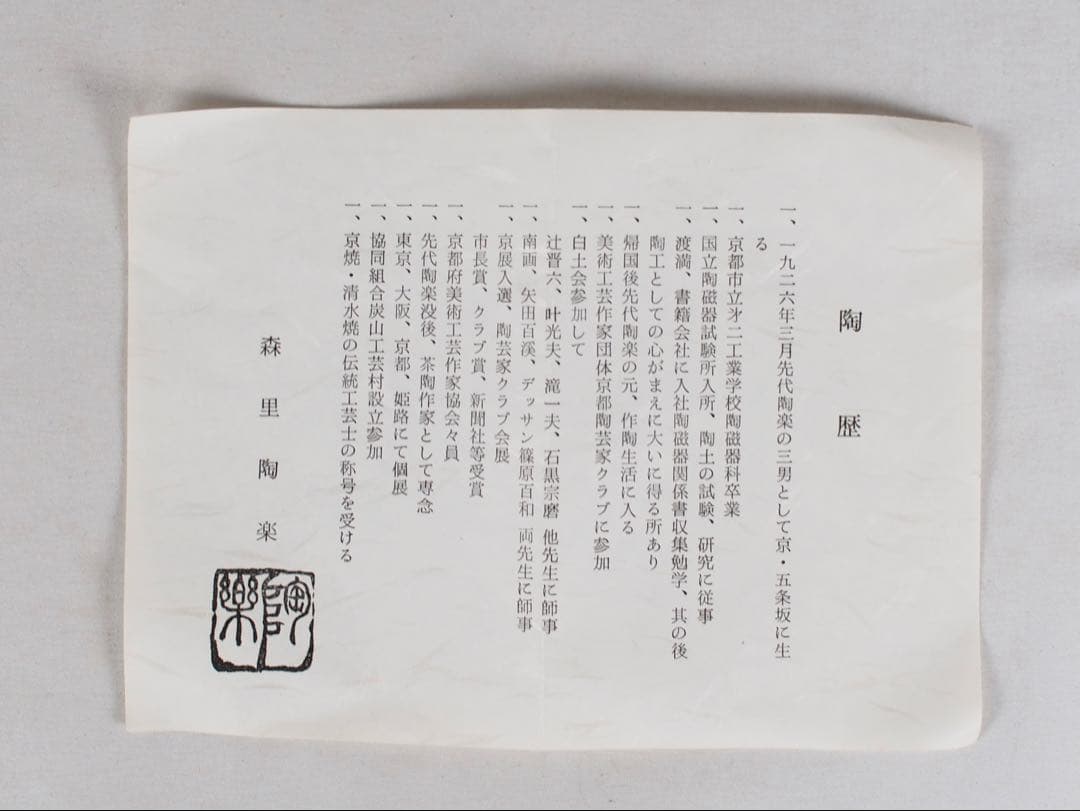 陶歴
一、一九二六年三月先代陶楽の三男として京・五条坂に生
る
一、京都市立才二工業学校陶磁器科卒業
一、国立陶磁器試験所入所、陶土の試験、研究に従事
一、渡満、書籍会社に入社陶磁器関係書収集勉学、其の後
陶工としての心がまえに大いに得る所あり
一、帰国後先代陶楽の元、作陶生活に入る
一、美術工芸作家団体京都陶芸家クラブに参加
一、白土会参加して
辻晋六、叶光夫、滝一夫、石黒宗磨 他先生に師事
一、南画、矢田百溪、デッサン篠原百和 両先生に師事
一、京展入選、陶芸家クラブ会展
市長賞、クラブ賞、新聞社等受賞
一、京都府美術工芸作家協会々員
一、先代陶楽没後、茶陶作家として専念
一、東京、大阪、京都、姫路にて個展
一、協同組合炭山工芸村設立参加
一、京焼・清水焼の伝統工芸士の称号を受ける
森里陶楽
陶樂